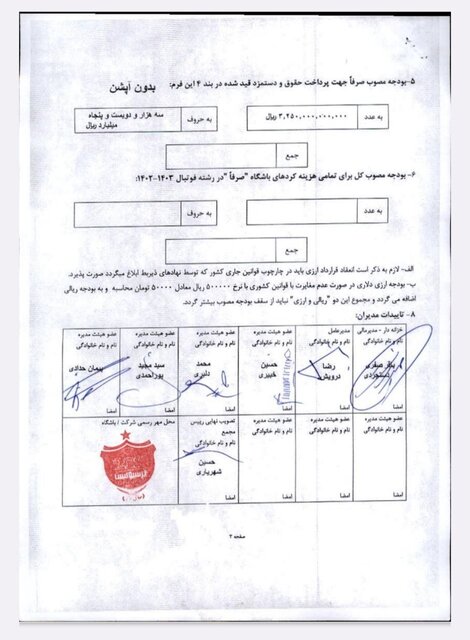 ۵-بودجه مصوب صرفاً جهت پرداخت حقوق و دستمزد قید شده در بند ۴ این فرم: بدون آپشن
به عدد
۳,۲۵۰,۰۰۰,۰۰۰,۰۰۰ ریال
به حروف
سه هزار و دویست و پنجاه
میلیارد ریال
جمع
۶-بودجه مصوب کل برای تمامی هزینه کردهای باشگاه "صرفاً" در رشته فوتبال ۱۴۰۳-۱۴۰۲:
به عدد
به حروف
جمع
الف- لازم به ذکر است انعقاد قرارداد ارزی باید در چارچوب قوانین جاری کشور که توسط نهادهای ذیربط ابلاغ میگردد صورت پذیرد.
ب- بودجه ارزی دلاری در صورت عدم مغایرت با قوانین کشوری با نرخ ۵۰۰۰۰۰ ریال معادل ۵۰۰۰۰ تومان محاسبه و به بودجه ریالی
اضافه می گردد و مجموع این دو "ریالی و ارزی" نباید از سقف بودجه مصوب بیشتر گردد.
۸- تاییدات مدیران:
خزانه دار - مدیرمالی
نام و نام خانوادگی
باقر صفری
دستجردی
امضا
مدیرعامل
نام و نام خانوادگی
رضا
درویش
امضا
عضو هیئت مدیره
نام و نام خانوادگی
حسین
خبیری
امضا
عضو هیئت مدیره
نام و نام خانوادگی
محمد
دلبری
امضا
عضو هیئت مدیره
نام و نام خانوادگی
سید مجید
پوراحمدی
امضا
عضو هیئت مدیره
نام و نام خانوادگی
پیمان حدادی
امضا
عضو هیئت مدیره
نام و نام خانوادگی
امضا
عضو هیئت مدیره
نام و نام خانوادگی
امضا
عضو هیئت مدیره
نام و نام خانوادگی
امضا
تصویب نهایی رییس
مجمع
نام و نام خانوادگی
حسین
شهریاری
امضا
محل مهر رسمی شرکت / باشگاه
پرسپولیس
صفحه ۲